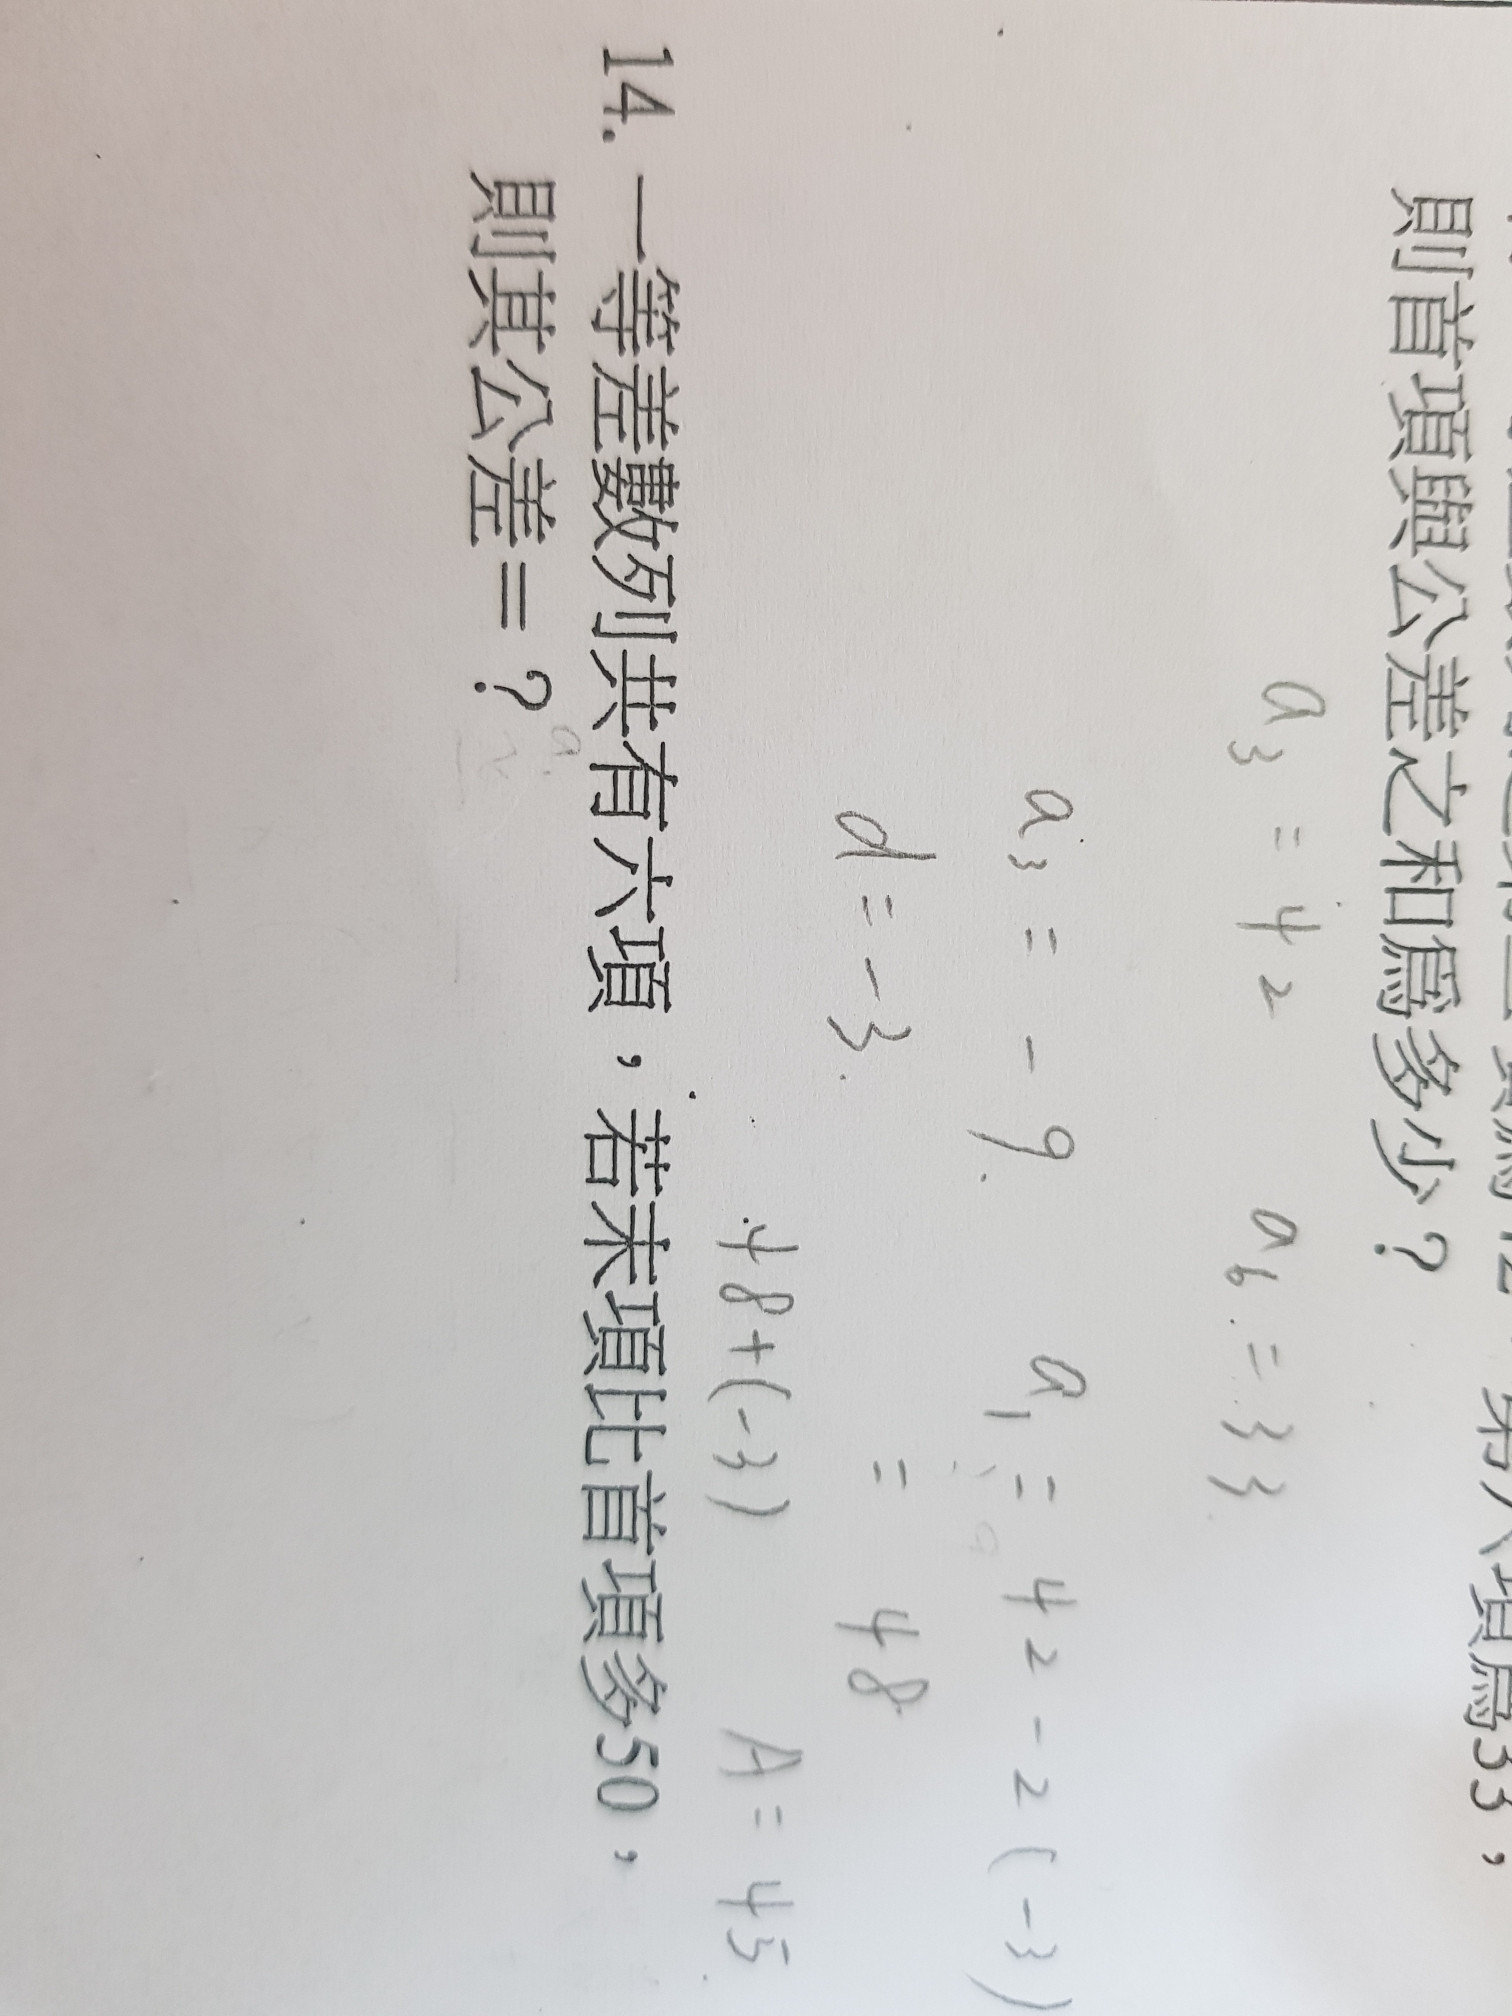 第六項爲33，
則首項與公差之和爲多少？
a₃ = 42 a₆ = 33
a₃ = -9 a₁ = 42 - 2(-3)
d = -3 = 48
48+(-3) A = 45
14. 一等差數列共有六項，若末項比首項多50，
則其公差=？